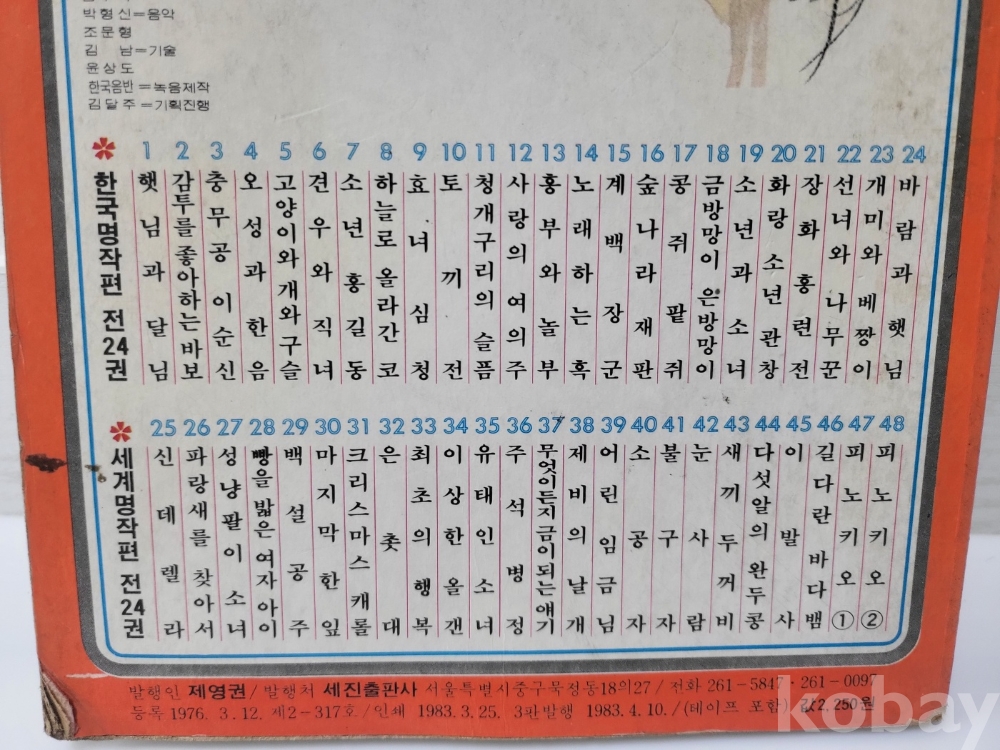 박형신=음악
조문형
김 남=기술
윤상도
한국음반=녹음제작
김달주=기획진행
한국명작편 전24권
1 햇님과 달님
2 감투를 좋아하는 바보
3 충무공 이순신
4 오성과 한음
5 고양이와 개와 구슬
6 견우와 직녀
7 소년 홍길동
8 하늘로 올라간 코
9 효녀 심청
10 토끼전
11 청개구리의 슬픔
12 사랑의 여의주
13 흥부와 놀부
14 노래하는 혹
15 계백장군
16 숲나라 재판
17 콩쥐 팥쥐
18 금방망이 은방망이
19 소년과 소녀
20 화랑 소년 관창
21 장화 홍련전
22 선녀와 나무꾼
23 개미와 베짱이
24 바람과 햇님
세계명작편 전24권
25 신데렐라
26 파랑새를 찾아서
27 성냥팔이 소녀
28 빵을 밟은 여자 아이
29 백설공주
30 마지막 한 잎
31 크리스마스 캐롤
32 은촛대
33 최초의 행복
34 이상한 올갠
35 유태인 소녀
36 주석 병정
37 무엇이든지 금이 되는 얘기
38 제비의 날개
39 어린 임금님
40 소공자
41 불구자
42 눈사람
43 새끼 두꺼비
44 다섯알의 완두콩
45 이발사
46 길다란 바다뱀
47 피노키오 ①
48 피노키오 ②
발행인 제영권/발행처 세진출판사 서울특별시중구묵정동18의27/전화 261-5847·261-0097
등록 1976. 3.12. 제2-317호/인쇄 1983.3.25. 3판발행 1983.4.10./(테이프 포함) 값2,250원
kobay